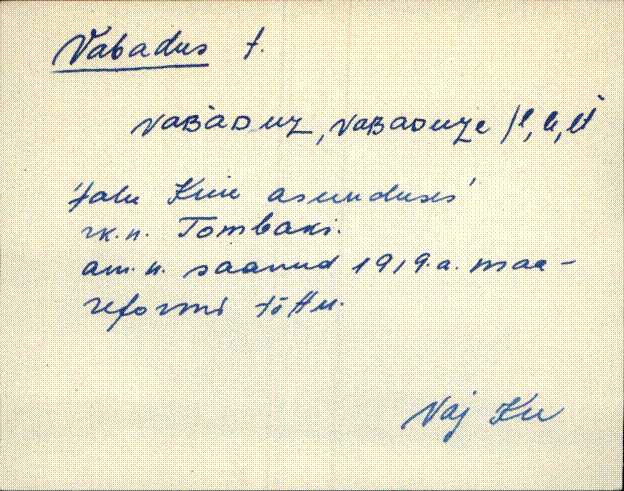 Vabadus t.
VABADUZ, VABADUZE /l, le, lt
'talu Kiie asunduses'
rk.n. Tombaki.
am.n. saanud 1919.a. maa-
reformi tõttu.
Vaj